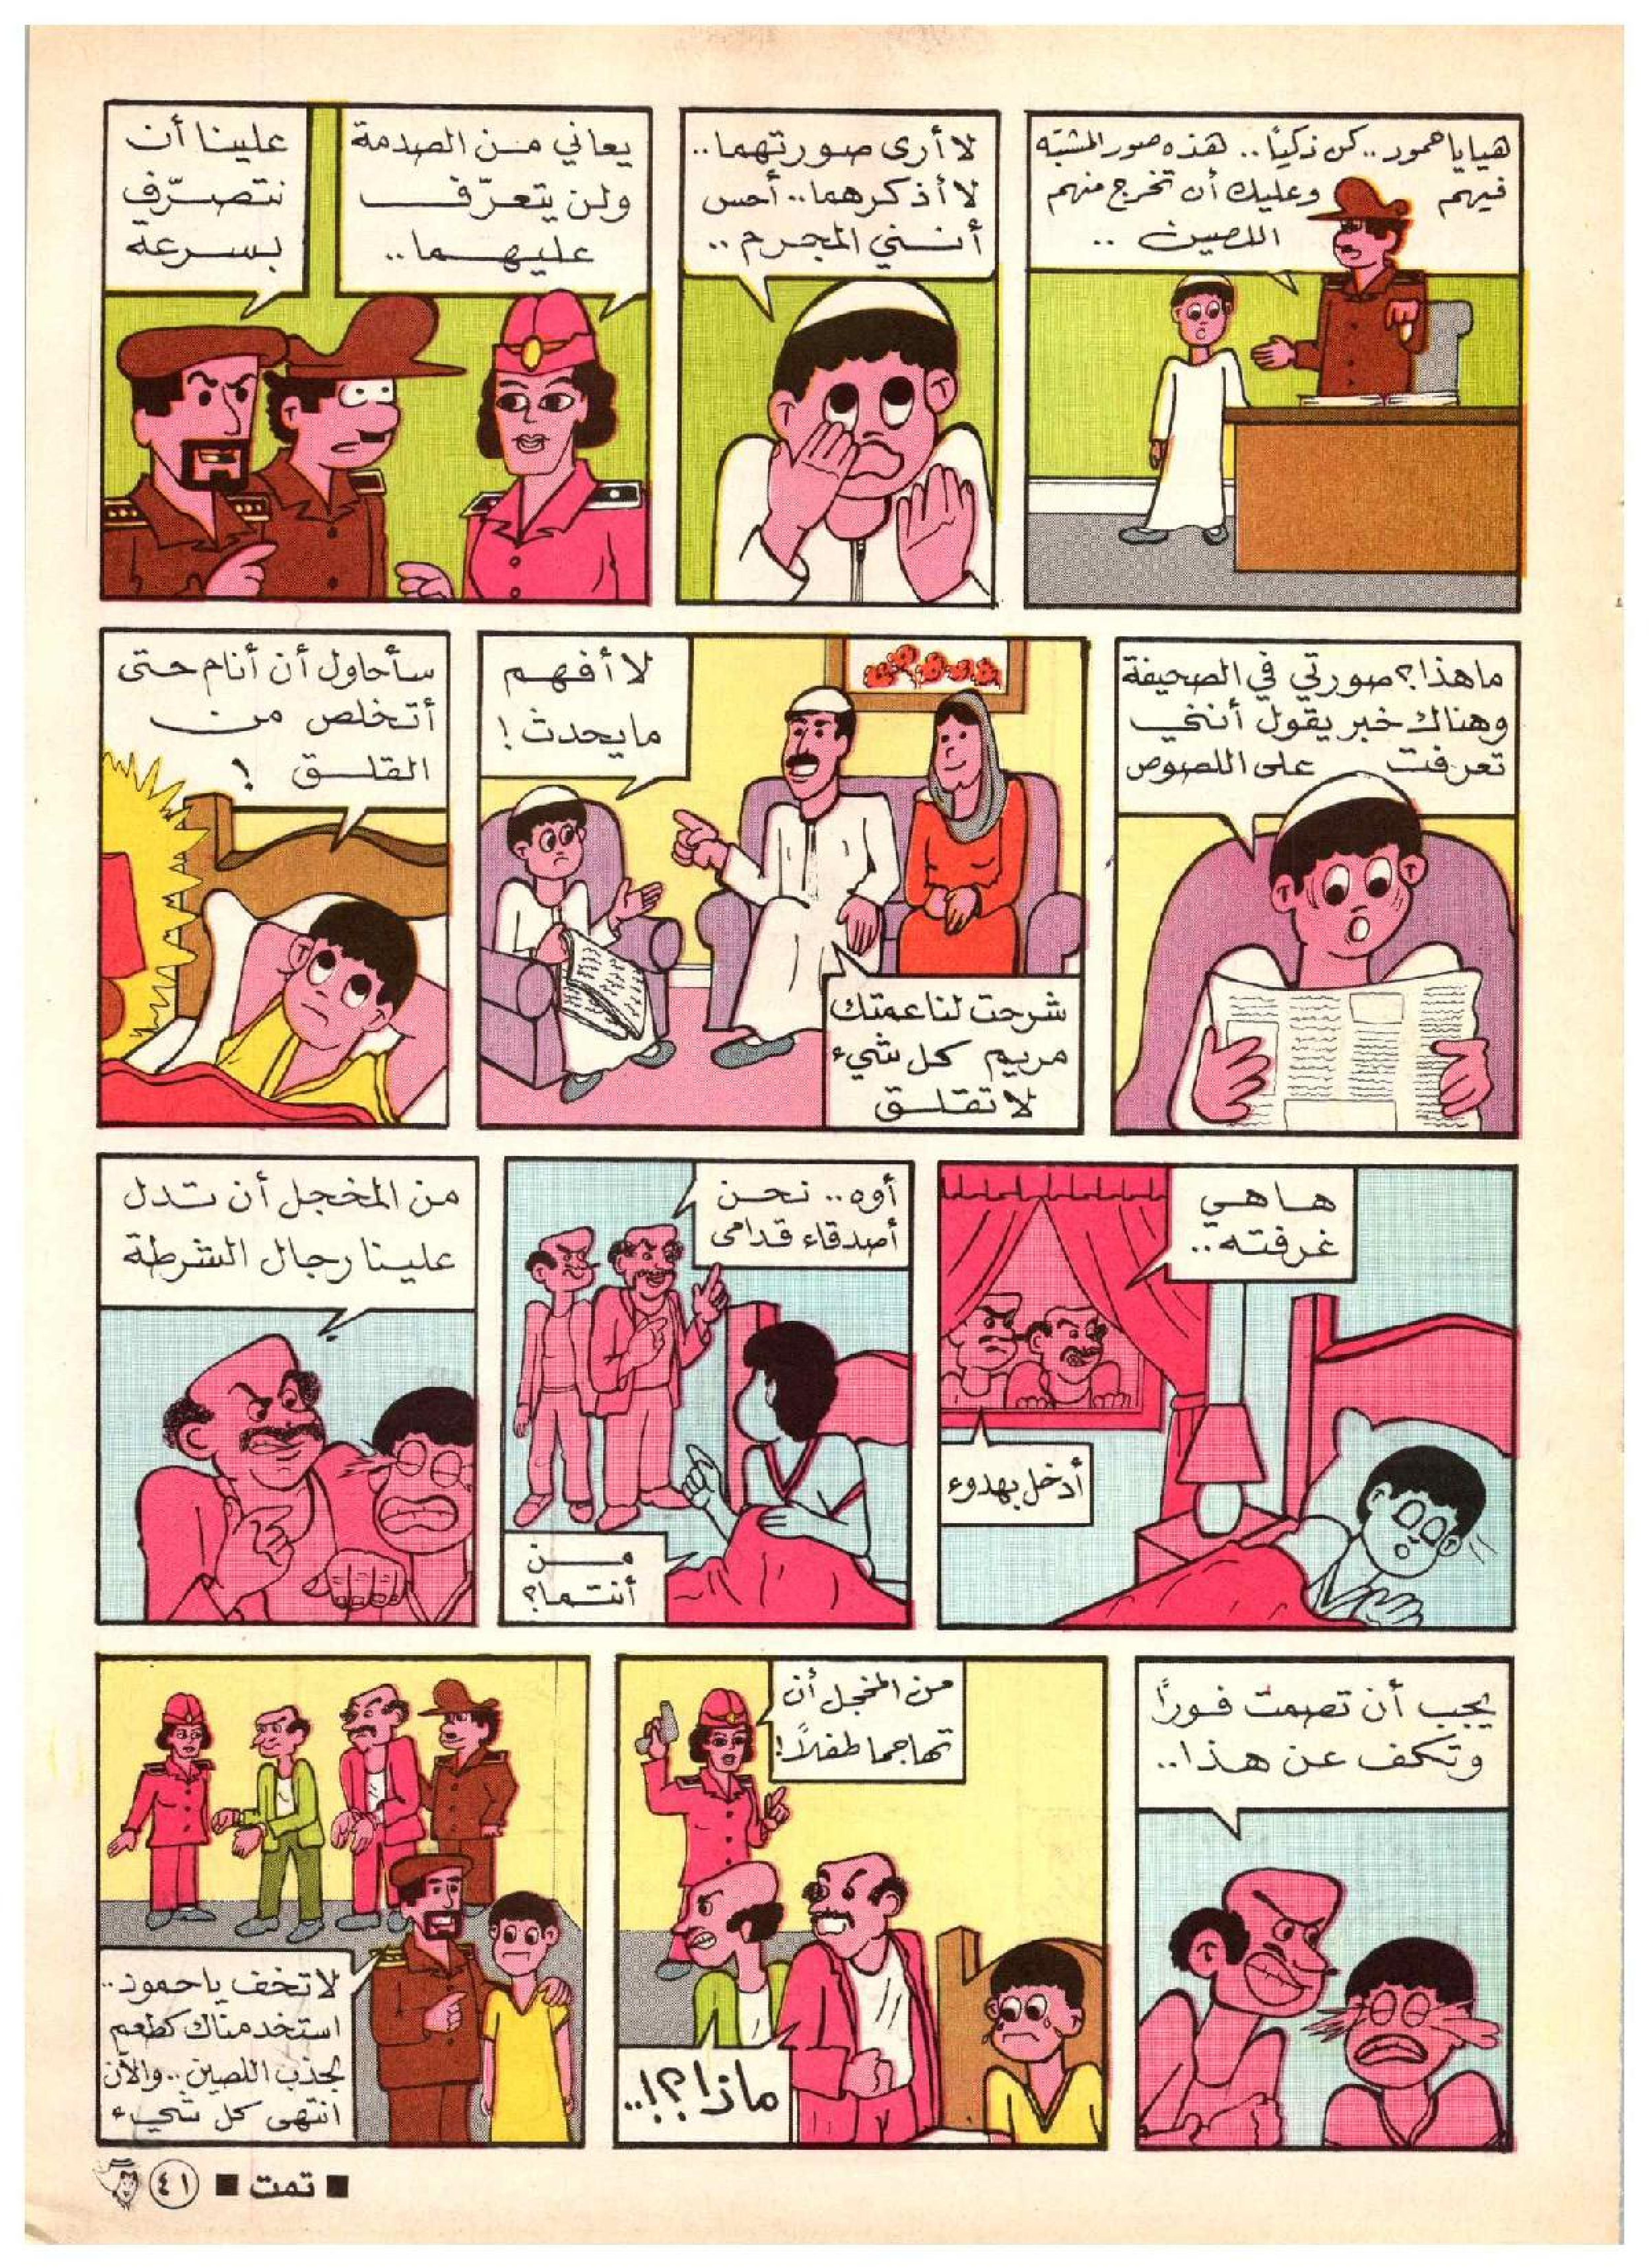 هيا يا حمود.. كن ذكيًا.. هذه صور المشتبه
فيهم وعليك أن تخرج منهم
اللصين ..
لا أرى صورتهما..
لا أذكرهما.. أحس
أنني المجرم ..
يعاني من الصدمة
ولن يتعرّف
عليهما..
علينا أن
نتصرّف
بسرعة
ما هذا؟ صورتي في الصحيفة
وهناك خبر يقول أنني
تعرفت على اللصوص
لا أفهم
ما يحدث!
شرحت لنا عمتك
مريم كل شيء
لا تقلق
سأحاول أن أنام حتى
أتخلص من
القلق !
ها هي
غرفته..
أدخل بهدوء
أوه.. نحن
أصدقاء قدامى
من
أنتما؟
من المخجل أن تدل
علينا رجال الشرطة
يجب أن تصمت فورًا
وتكف عن هذا..
من المخجل أن
تهاجما طفلاً!
ماذا؟!..
لا تخف يا حمود..
استخدمناك كطعم
لجذب اللصين.. والآن
انتهى كل شيء
■ تمت ■ ٤١